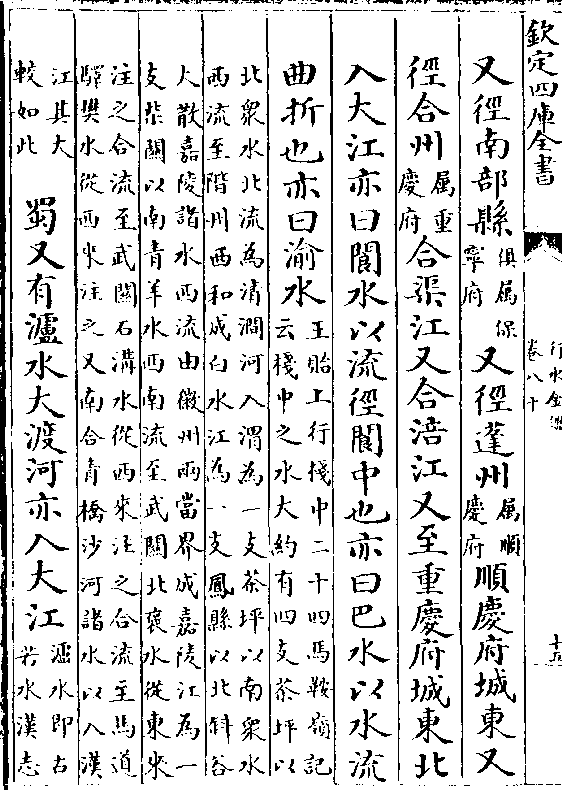 欽定四庫全書
行水金鑑
卷八十
十五
又徑南部縣俱屬保寧府又徑蓬州屬順慶府順慶府城東又
徑合州屬重慶府合渠江又合涪江又至重慶府城東北
入大江亦曰閬水以流徑閬中也亦曰巴水以水流
曲折也亦曰渝水王貽上行棧中二十四馬鞍嶺記
云棧中之水大約有四支茶坪以
北衆水北流為清澗河入渭為一支茶坪以南衆水
西流至階州西和成白水江為一支鳳縣以北斜谷
大散嘉陵諸水西流由徽州兩當界成嘉陵江為一
支柴關以南青羊水西南流至武關北褒水從東來
注之合流至武關石溝水從西來注之合流至馬道
驛樊水從西來注之又南合青橋沙河諸水以入漢
江其大
較如此
蜀又有瀘水大渡河亦入大江瀘水即古
若水漢志